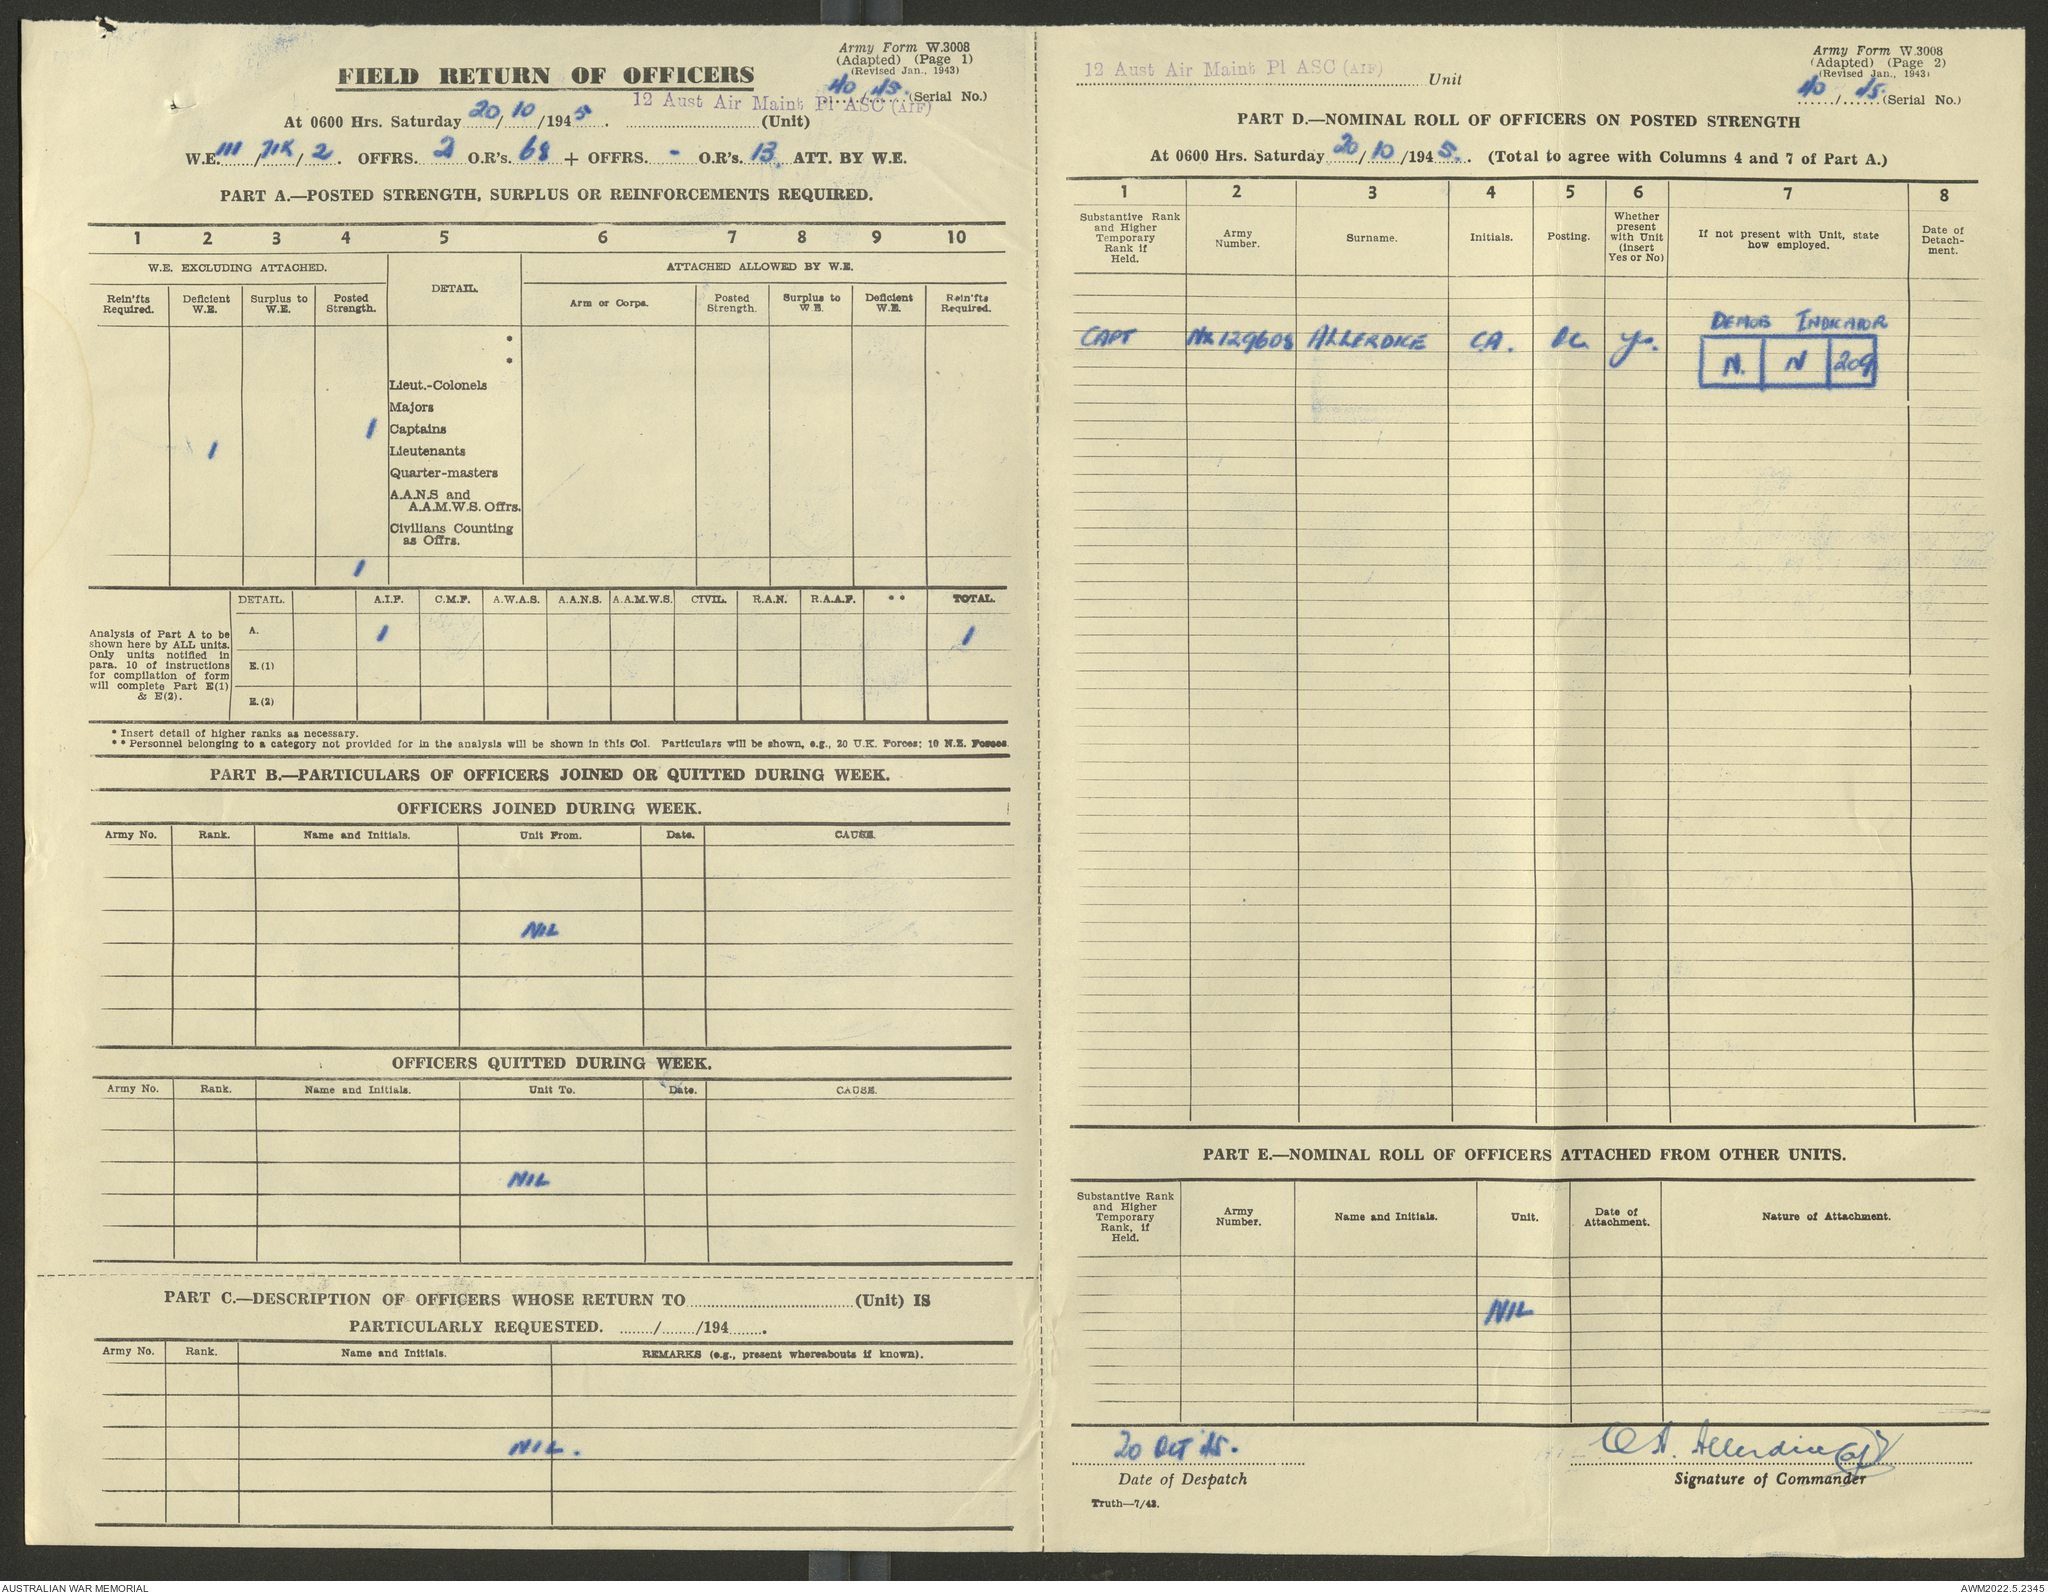 Army Form W.3008
(Adapted) (Page 1)
(Revised Jan., 1943)
FIELD RETURN OF OFFICERS
40/45. (Serial No.)
12 Aust Air Maint Pl ASC (AIF)
At 0600 Hrs. Saturday 20/10/1945. (Unit)
W.E. III/71K/2. OFFRS. 2 O.R's. 68 + OFFRS. - O.R's. 13 ATT. BY W.E.
PART A.—POSTED STRENGTH, SURPLUS OR REINFORCEMENTS REQUIRED.
1 2 3 4 5 6 7 8 9 10
W.E. EXCLUDING ATTACHED. DETAIL. ATTACHED ALLOWED BY W.E.
Rein'fts Required. Deficient W.E. Surplus to W.E. Posted Strength. Arm or Corps. Posted Strength. Surplus to W.E. Deficient W.E. Rein'fts Required.
*
*
Lieut.-Colonels
Majors
1 Captains
1 Lieutenants
Quarter-masters
A.A.N.S and
A.A.M.W.S. Offrs.
Civilians Counting
as Offrs.
1
DETAIL. A.I.F. C.M.F. A.W.A.S. A.A.N.S. A.A.M.W.S. CIVIL. R.A.N. R.A.A.F. ** TOTAL.
Analysis of Part A to be
shown here by ALL units.
Only units notified in
para. 10 of instructions
for compilation of form
will complete Part E(1)
& E(2).
A. 1 1
E.(1)
E.(2)
* Insert detail of higher ranks as necessary.
** Personnel belonging to a category not provided for in the analysis will be shown in this Col. Particulars will be shown, e.g., 20 U.K. Forces; 10 N.Z. Forces.
PART B.—PARTICULARS OF OFFICERS JOINED OR QUITTED DURING WEEK.
OFFICERS JOINED DURING WEEK.
Army No. Rank. Name and Initials. Unit From. Date. CAUSE.
NIL
OFFICERS QUITTED DURING WEEK.
Army No. Rank. Name and Initials. Unit To. Date. CAUSE.
NIL
PART C.—DESCRIPTION OF OFFICERS WHOSE RETURN TO (Unit) IS
PARTICULARLY REQUESTED. ....../....../194.......
Army No. Rank. Name and Initials. REMARKS (e.g., present whereabouts if known).
NIL.
Army Form W.3008
(Adapted) (Page 2)
(Revised Jan., 1943)
12 Aust Air Maint Pl ASC (AIF) Unit
40/45. (Serial No.)
PART D.—NOMINAL ROLL OF OFFICERS ON POSTED STRENGTH
At 0600 Hrs. Saturday 20/10/1945. (Total to agree with Columns 4 and 7 of Part A.)
1 2 3 4 5 6 7 8
Substantive Rank and Higher Temporary Rank if Held. Army Number. Surname. Initials. Posting. Whether present with Unit (Insert Yes or No) If not present with Unit, state how employed. Date of Detachment.
DEMOB INDICATOR
CAPT NX129608 ALLERDICE C.A. OC. Yes.
N. N 209
PART E.—NOMINAL ROLL OF OFFICERS ATTACHED FROM OTHER UNITS.
Substantive Rank and Higher Temporary Rank, if Held. Army Number. Name and Initials. Unit. Date of Attachment. Nature of Attachment.
NIL
20 OCT 45. C A. Allerdice
Date of Despatch Signature of Commander
Truth—7/43.
AUSTRALIAN WAR MEMORIAL AWM2022.5.2345